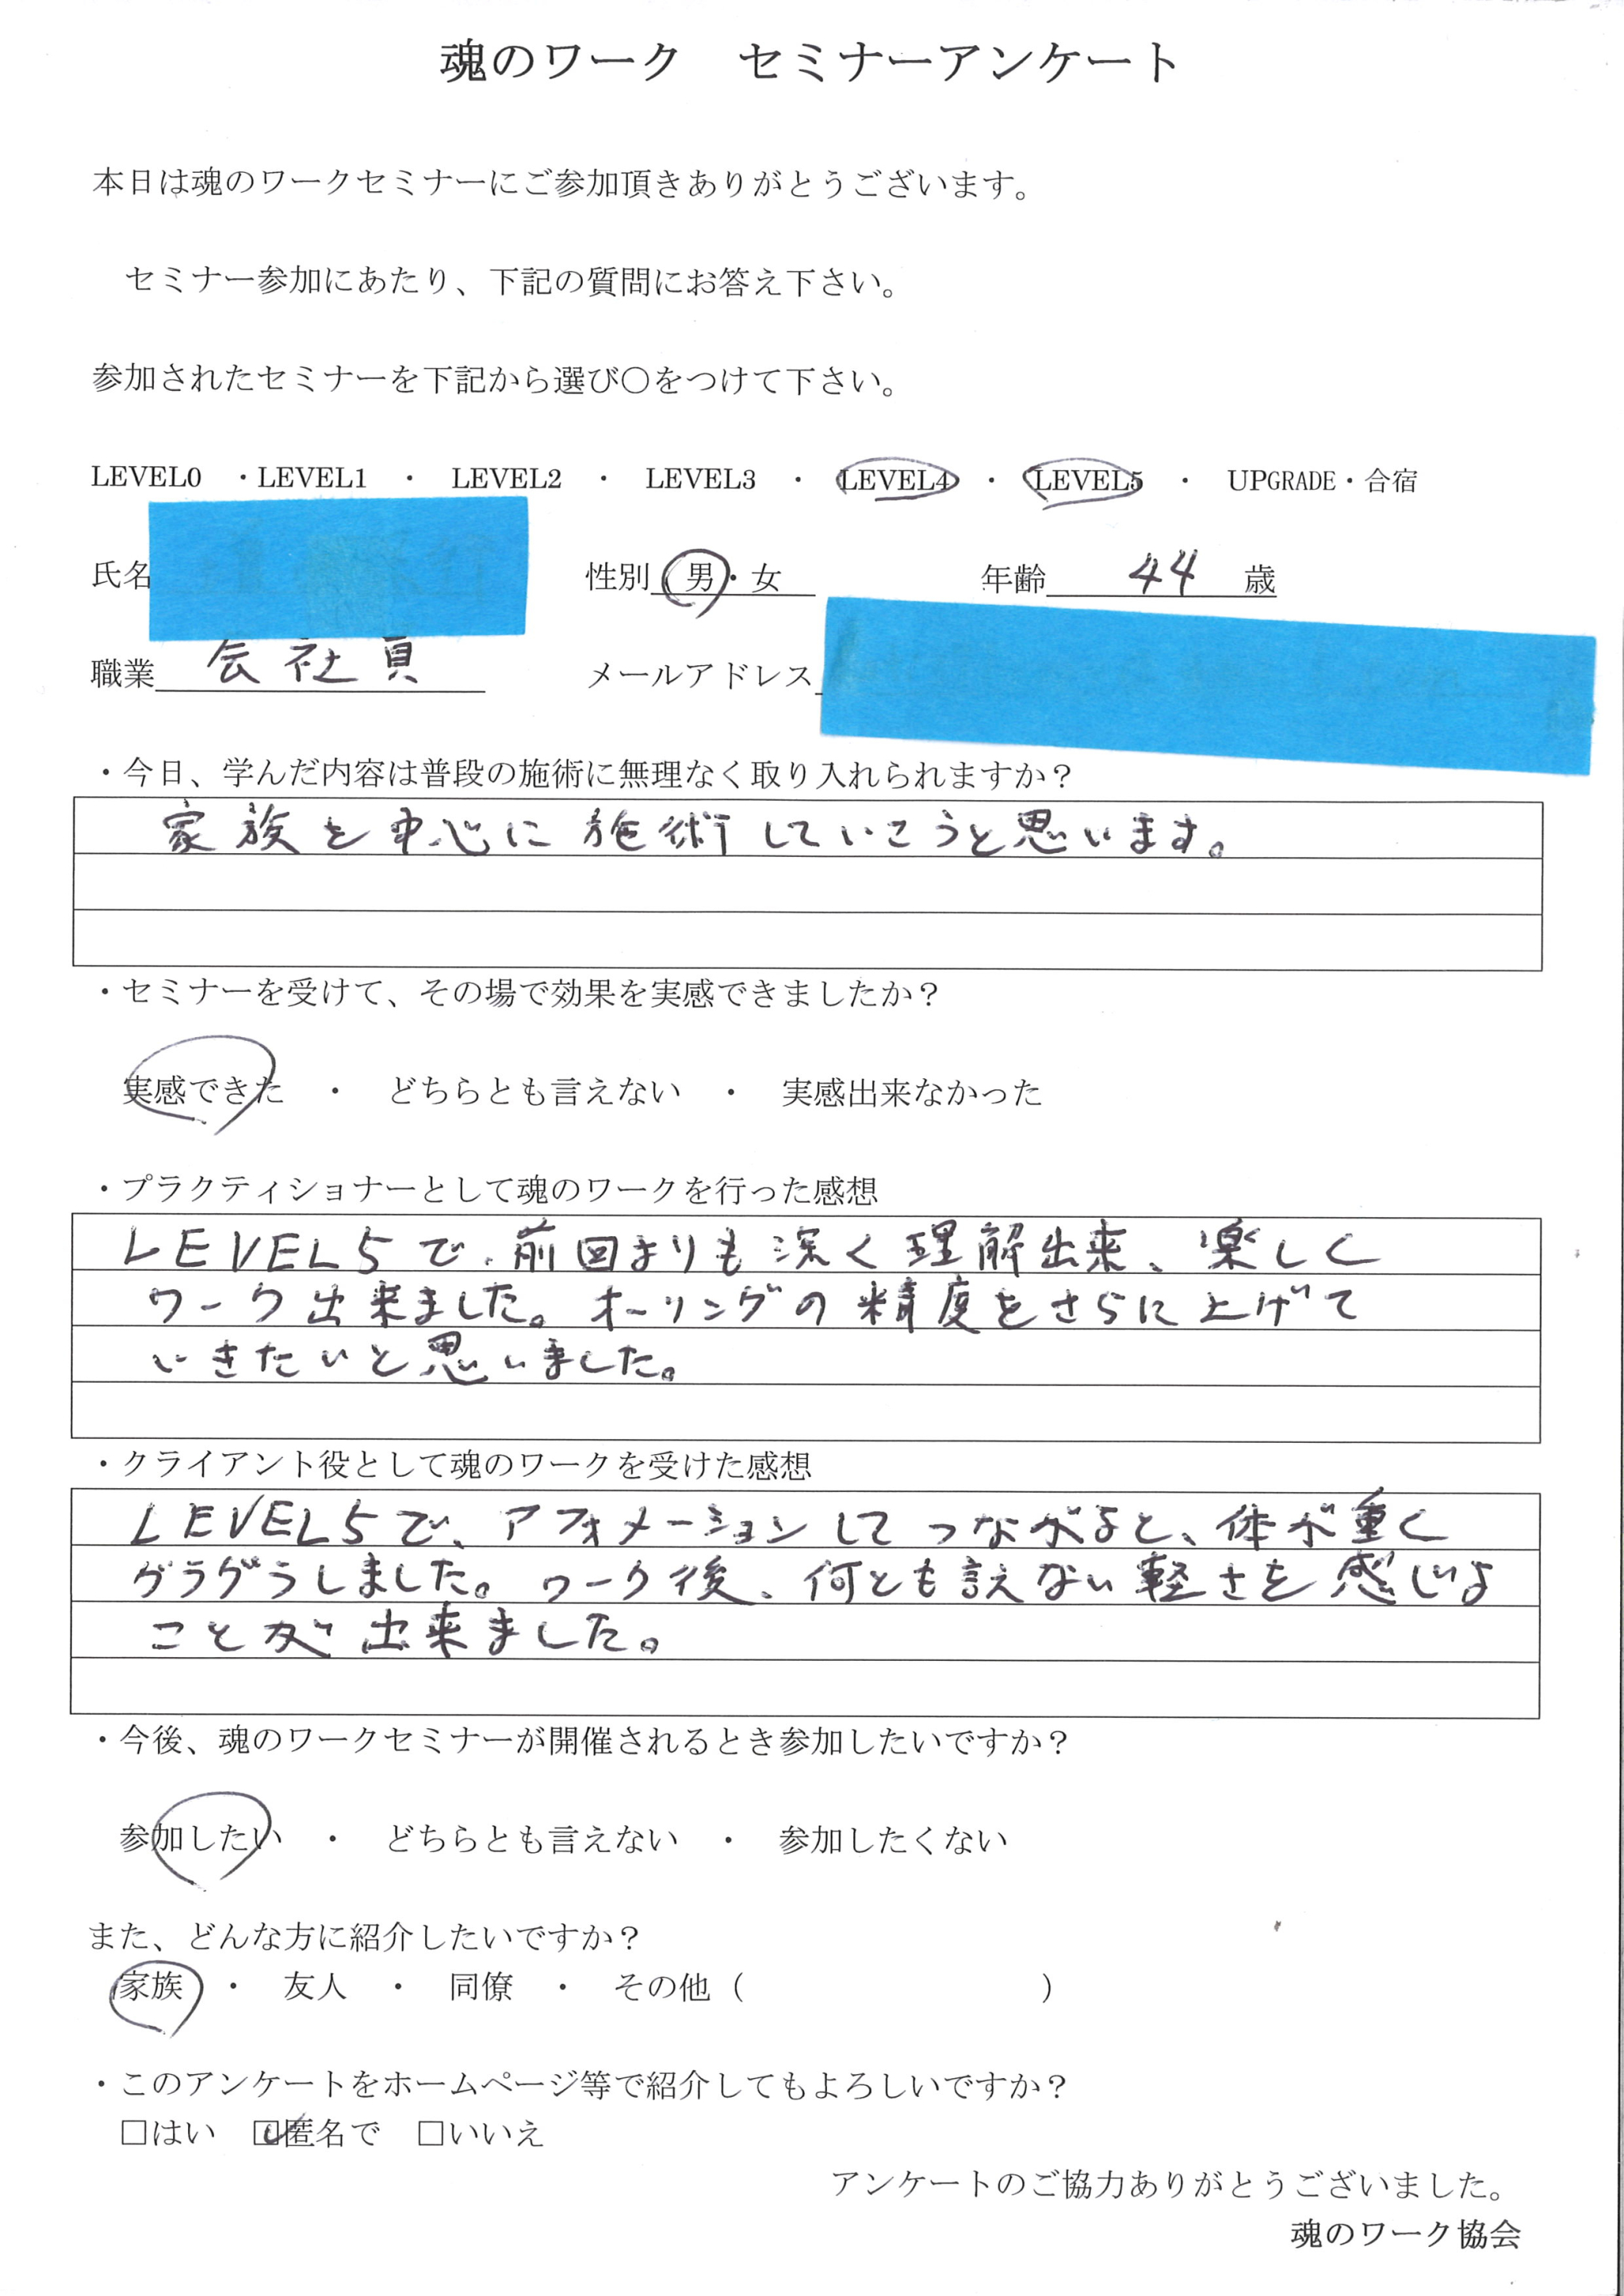 魂のワーク　セミナーアンケート
本日は魂のワークセミナーにご参加頂きありがとうございます。
セミナー参加にあたり、下記の質問にお答え下さい。
参加されたセミナーを下記から選び〇をつけて下さい。
LEVEL0　・LEVEL1　・　LEVEL2　・　LEVEL3　・　LEVEL4　・　LEVEL5　・　UPGRADE・合宿
氏名　性別　男・女　年齢　44　歳
職業　会社員　メールアドレス
・今日、学んだ内容は普段の施術に無理なく取り入れられますか？
家族を中心に施術していこうと思います。
・セミナーを受けて、その場で効果を実感できましたか？
実感できた　・　どちらとも言えない　・　実感出来なかった
・プラクティショナーとして魂のワークを行った感想
LEVEL5で、前回よりも深く理解出来、楽しく
ワーク出来ました。オーリングの精度をさらに上げて
いきたいと思いました。
・クライアント役として魂のワークを受けた感想
LEVEL5で、アフォメーションしてつながると、体が重く
グラグラしました。ワーク後、何とも言えない軽さを感じる
ことが出来ました。
・今後、魂のワークセミナーが開催されるとき参加したいですか？
参加したい　・　どちらとも言えない　・　参加したくない
また、どんな方に紹介したいですか？
家族　・　友人　・　同僚　・　その他（　　　　　　　　　）
・このアンケートをホームページ等で紹介してもよろしいですか？
□はい　☑匿名で　□いいえ
アンケートのご協力ありがとうございました。
魂のワーク協会